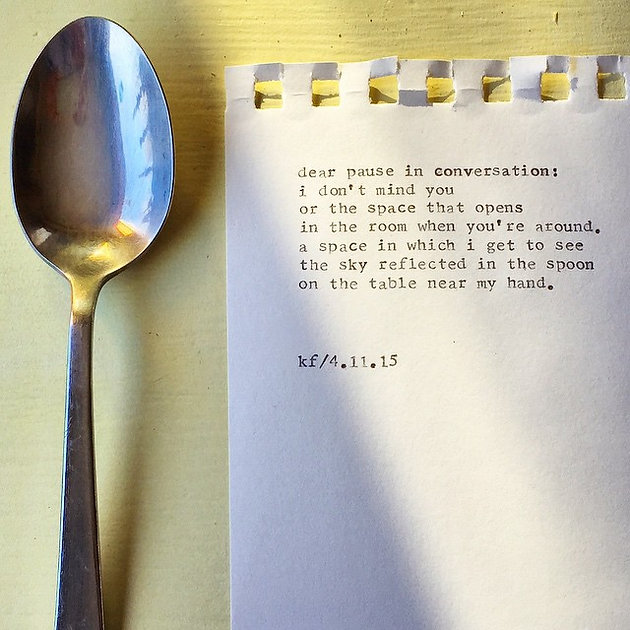 dear pause in conversation:
i don't mind you
or the space that opens
in the room when you're around.
a space in which i get to see
the sky reflected in the spoon
on the table near my hand.
kf/4.11.15